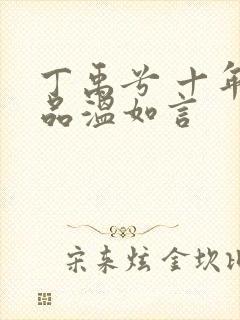 丁禹兮十年
品温如言
宋轶炫金坎比